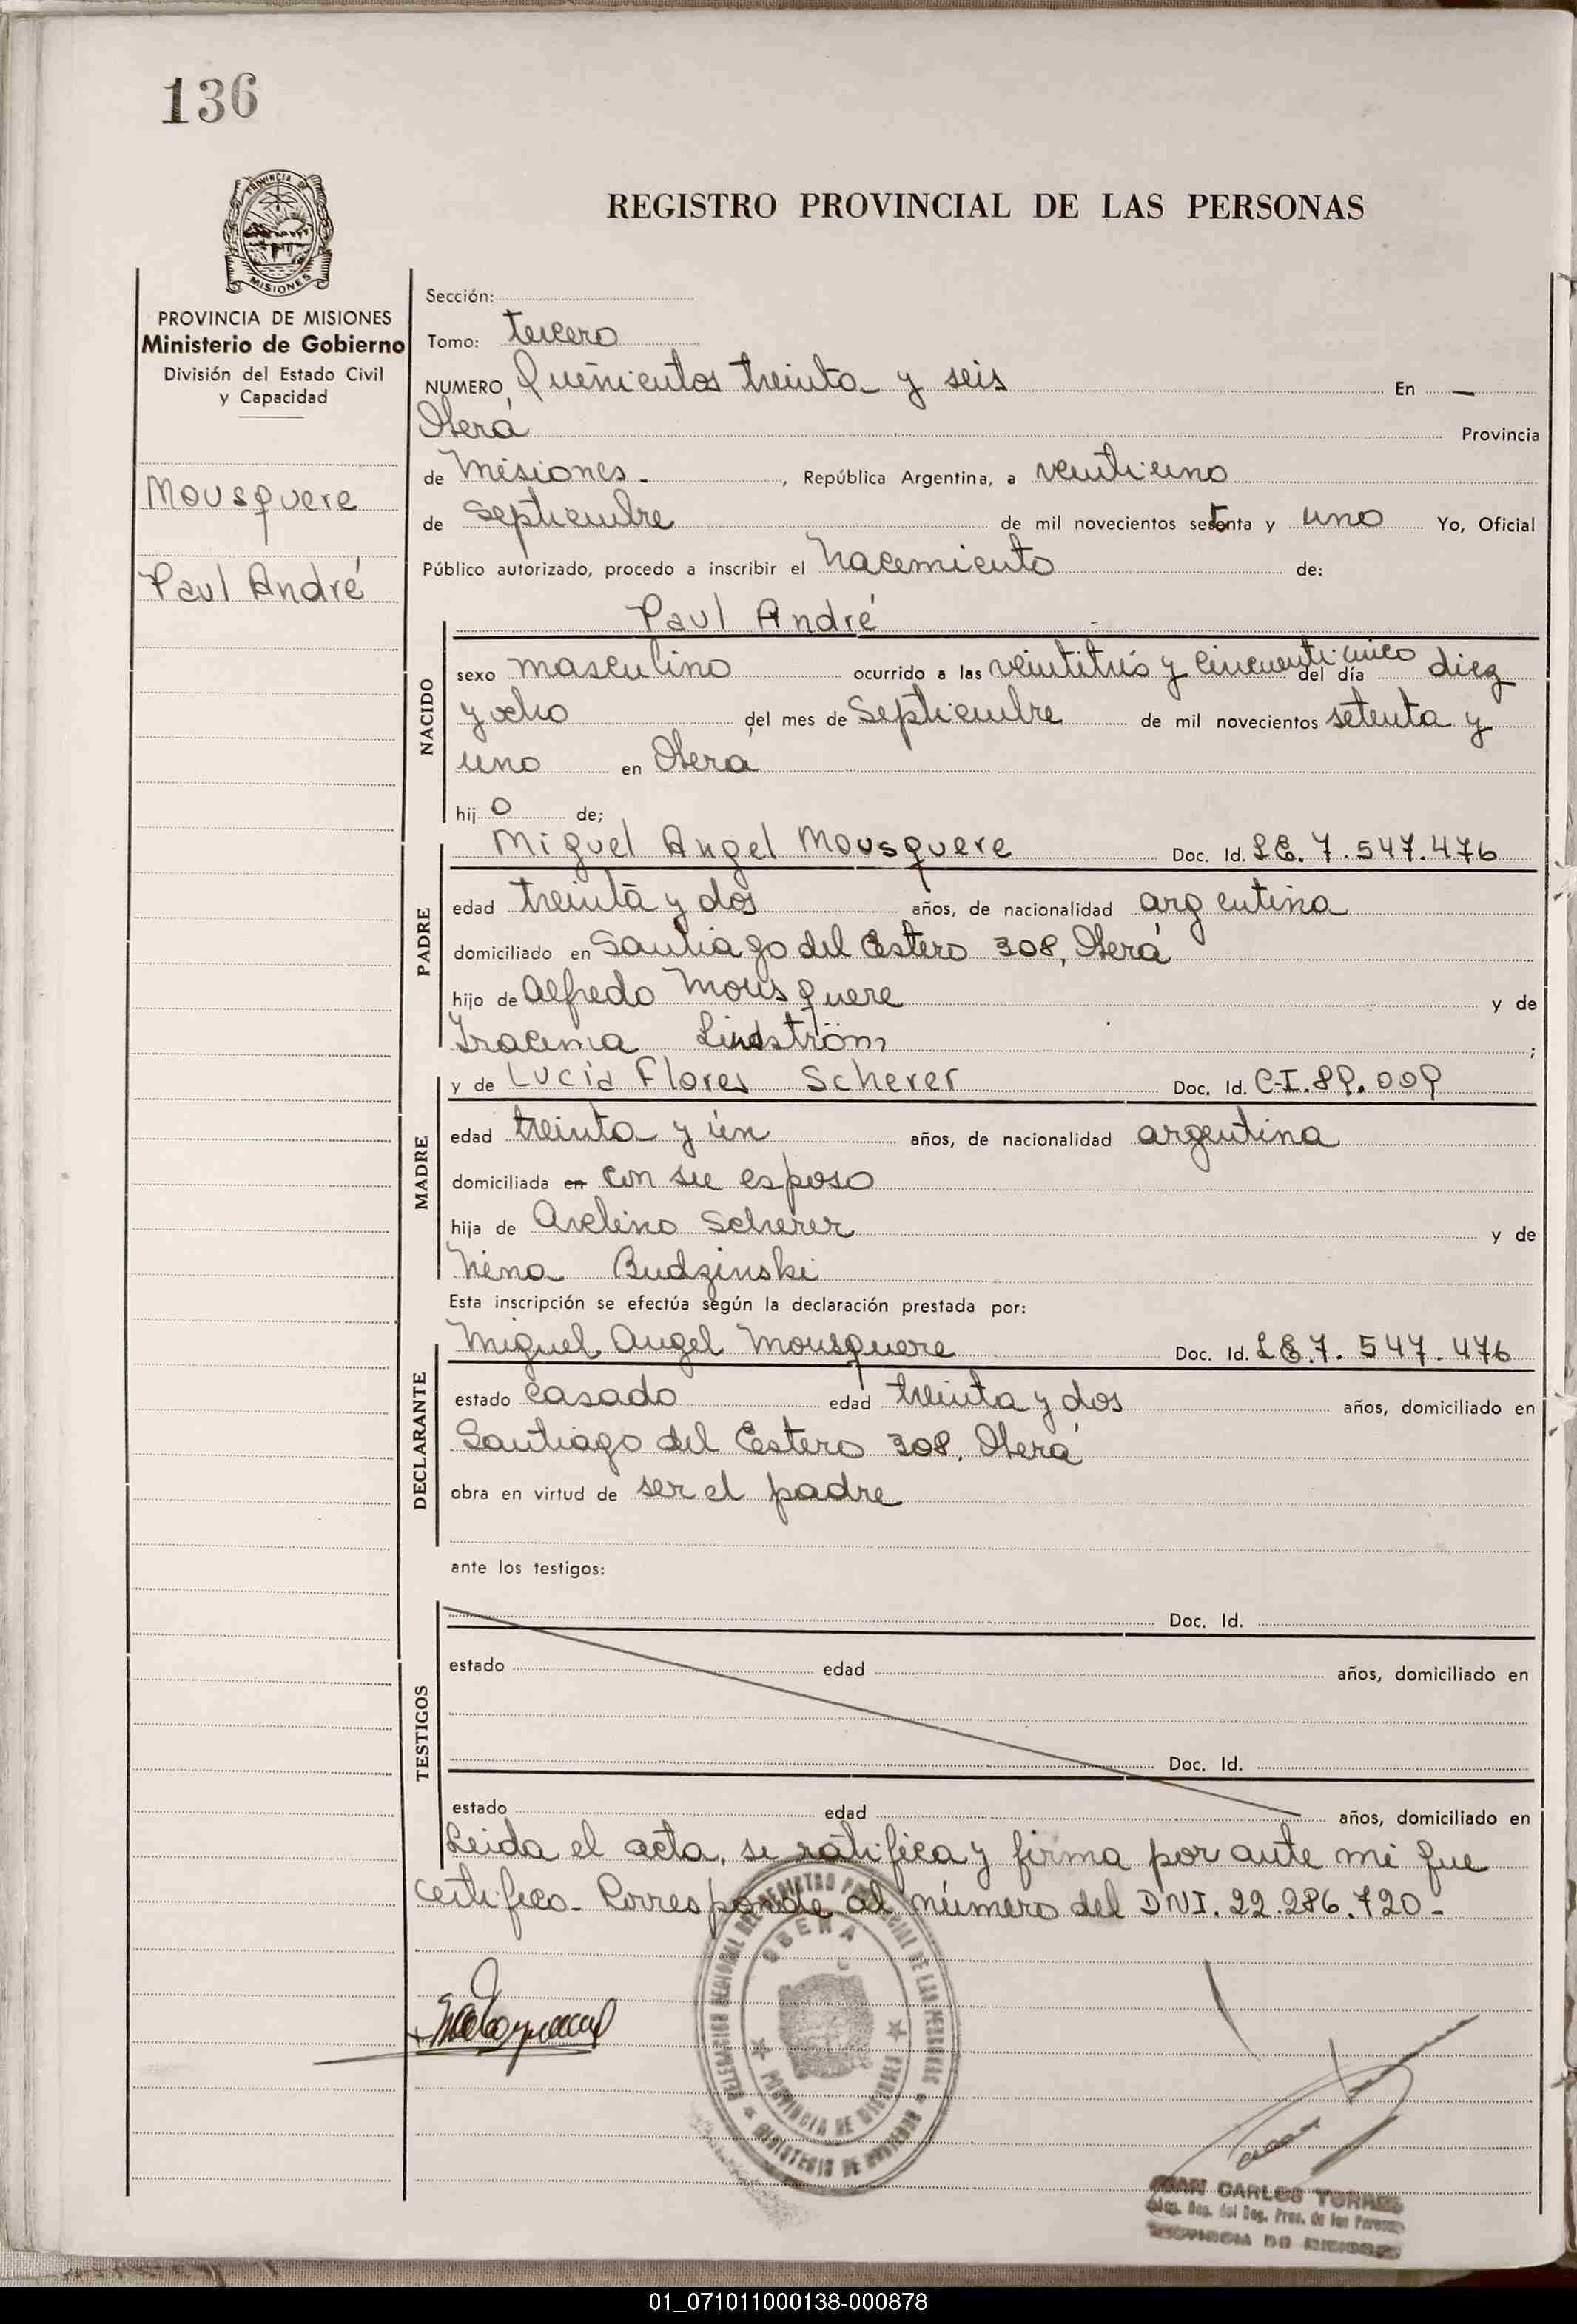 136
PROVINCIA DE
MISIONES
REGISTRO PROVINCIAL DE LAS PERSONAS
PROVINCIA DE MISIONES
Ministerio de Gobierno
División del Estado Civil
y Capacidad
Mousquere
Paul André
Sección:
Tomo: tercero
NUMERO Quinientos treinta y seis En —
Oberá Provincia
de Misiones. , República Argentina, a veintiuno
de Septiembre de mil novecientos setenta y uno Yo, Oficial
Público autorizado, procedo a inscribir el Nacimiento de:
NACIDO
Paul André
sexo masculino ocurrido a las veintitrés y cincuenticinco del día diez
y ocho del mes de Septiembre de mil novecientos setenta y
uno en Oberá
hij o de;
PADRE
Miguel Angel Mousquere Doc. Id. LE. 7.547.476
edad treinta y dos años, de nacionalidad argentina
domiciliado en Santiago del Estero 308, Oberá
hijo de Alfredo Mousquere y de
Iracema Lindström ;
MADRE
y de Lucia Flores Scherer Doc. Id. C-I.89.009
edad treinta y ún años, de nacionalidad argentina
domiciliada en con su esposo
hija de Avelino Scherer y de
Nina Budzinski
Esta inscripción se efectúa según la declaración prestada por:
DECLARANTE
Miguel Angel Mousquere Doc. Id. LE.7.547.476
estado casado edad treinta y dos años, domiciliado en
Santiago del Estero 308, Oberá
obra en virtud de ser el padre
ante los testigos:
TESTIGOS
Doc. Id.
estado edad años, domiciliado en
Doc. Id.
estado edad años, domiciliado en
Leida el acta, se ratifica y firma por ante mi que
certifico. Corresponde al número del DNI. 22.286.720-
DELEGACION REGIONAL DEL REGISTRO PROVINCIAL DE LAS PERSONAS
OBERA
PROVINCIA DE MISIONES
MINISTERIO DE GOBIERNO
JUAN CARLOS TORRES
Reg. Prov. de las Personas
PROVINCIA DE MISIONES
01_071011000138-000878